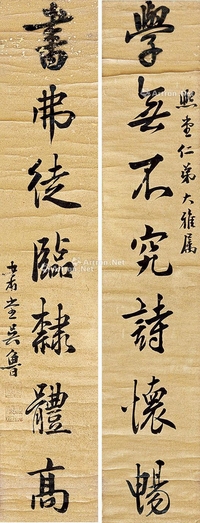 熙堂仁弟大雅属
學無不究詩懷暢
書弗徒臨隸體高
肅堂吳魯